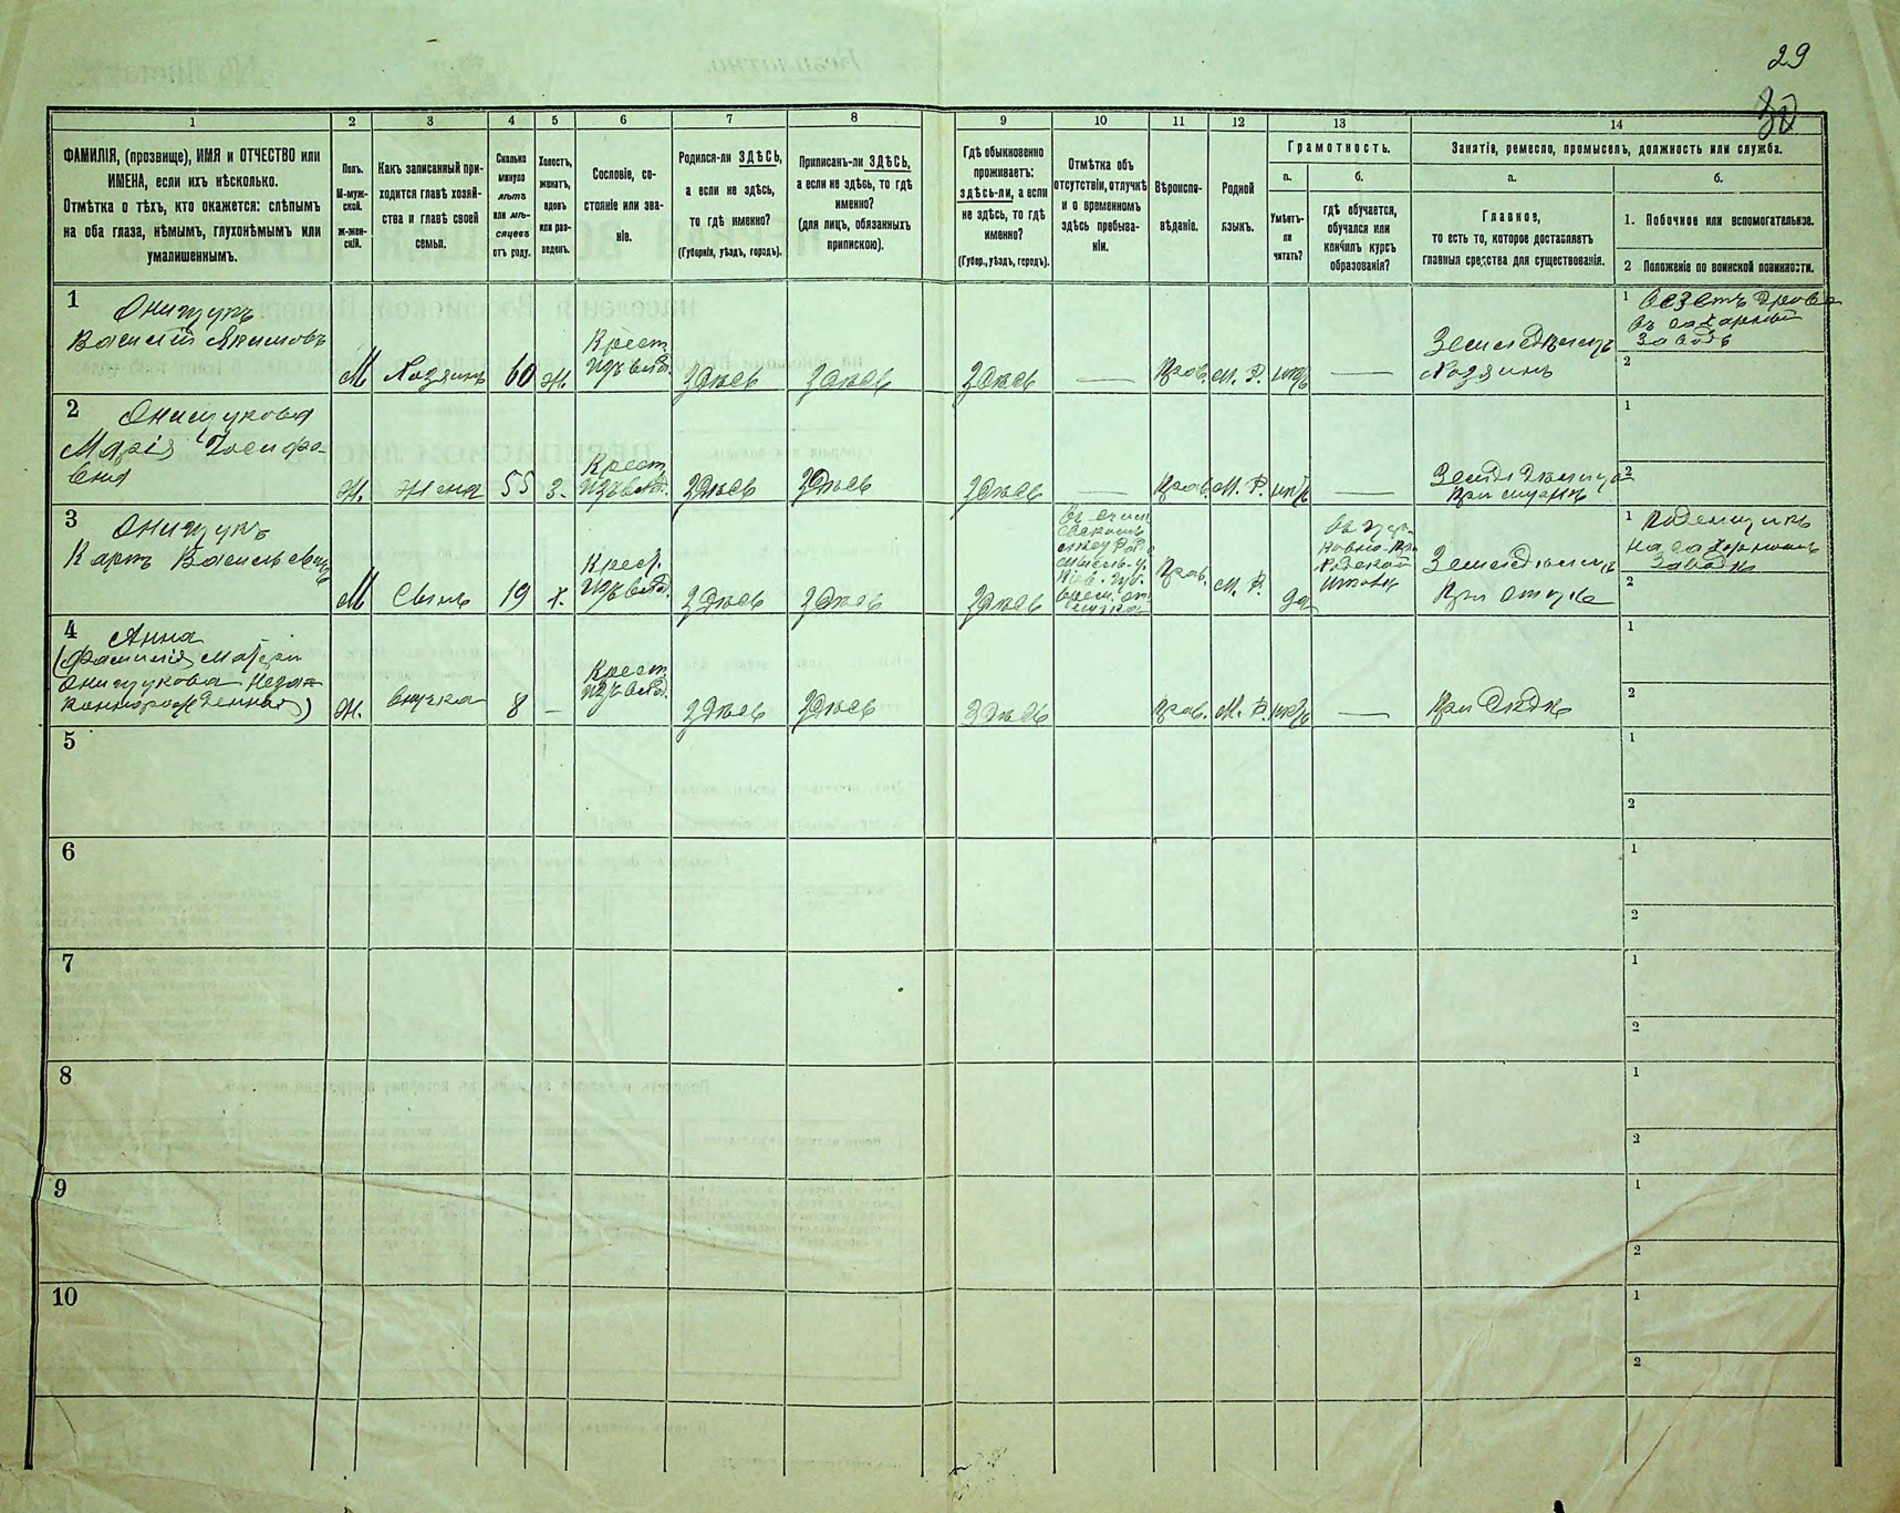 29
30
1
2
3
4
5
6
7
8
9
10
11
12
13
14
ФАМИЛІЯ, (прозвище), ИМЯ и ОТЧЕСТВО или
ИМЕНА, если ихъ нѣсколько.
Отмѣтка о тѣхъ, кто окажется: слѣпымъ
на оба глаза, нѣмымъ, глухонѣмымъ или
умалишеннымъ.
Полъ.
М-муж-
ской.
ж-жен-
скій.
Какъ записанный при-
ходится главѣ хозяй-
ства и главѣ своей
семьи.
Сколько
минуло
лѣтъ
или мѣ-
сяцевъ
отъ роду.
Холостъ,
женатъ,
вдовъ
или раз-
веденъ.
Сословіе, со-
стояніе или зва-
ніе.
Родился-ли ЗДѢСЬ,
а если не здѣсь,
то гдѣ именно?
(Губернія, уѣздъ, городъ).
Приписанъ-ли ЗДѢСЬ,
а если не здѣсь, то гдѣ
именно?
(для лицъ, обязанныхъ
припискою).
Гдѣ обыкновенно
проживаетъ:
здѣсь-ли, а если
не здѣсь, то гдѣ
именно?
(Губер., уѣздъ, городъ).
Отмѣтка объ
отсутствіи, отлучкѣ
и о временномъ
здѣсь пребыва-
ніи.
Вѣроиспо-
вѣданіе.
Родной
языкъ.
Грамотность.
а.
Умѣетъ-
ли
читать?
б.
гдѣ обучается,
обучался или
кончилъ курсъ
образованія?
Занятіе, ремесло, промыселъ, должность или служба.
а.
Главное,
то есть то, которое доставляетъ
главныя средства для существованія.
б.
1. Побочное или вспомогательное.
2 Положеніе по воинской повинности.
1
Онищукъ
Василій Якимовъ
М
Хозяинъ
60
ж.
Крест.
изъ влад.
Здѣсь
Здѣсь
Здѣсь
—
Прав.
М. Р.
нѣтъ
—
Земледѣлецъ
Хозяинъ
1 Везетъ дрова
въ сахарный
заводъ
2
2
Онищукова
Марія Іосифо-
вна
Ж.
Жена
55
З.
Крест.
изъ влад.
Здѣсь
Здѣсь
Здѣсь
—
Прав.
М. Р.
нѣтъ
—
при мужѣ
1
2
3
Онищукъ
Карпъ Васильевичъ
М
Сынъ
19
х.
Крест.
изъ влад.
Здѣсь
Здѣсь
Здѣсь
Прав.
М. Р.
да
школѣ
Земледѣлецъ
При отцѣ
1 Поденщикъ
на сахарномъ
заводѣ
2
4
Анна
(фамилія матери
Онищукова неза=
коннорожденная)
Ж.
внучка
8
—
Крест.
изъ влад.
Здѣсь
Здѣсь
Здѣсь
Прав.
М. Р.
нѣтъ
—
При дѣдѣ
1
2
5
1
2
6
1
2
7
1
2
8
1
2
9
1
2
10
1
2